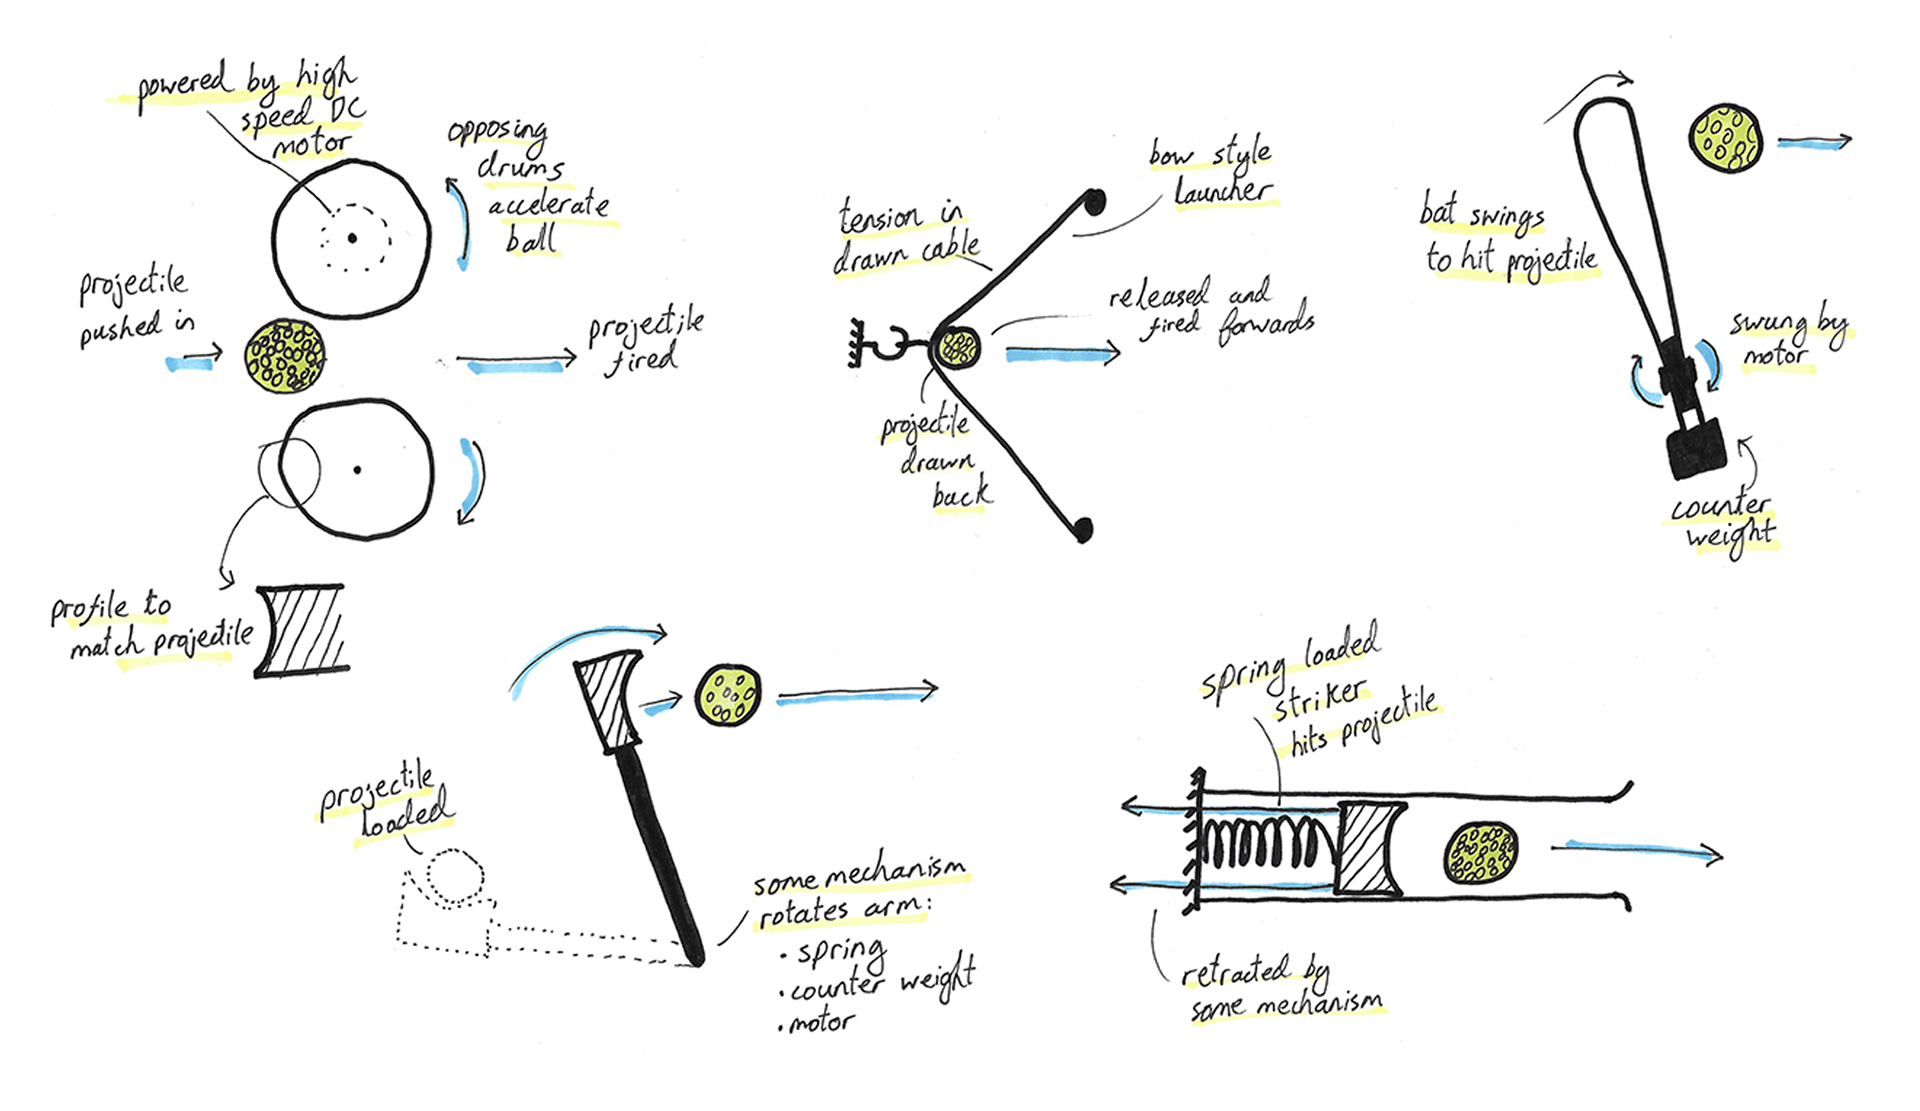 powered by high
speed DC
motor
opposing
drums
accelerate
ball
projectile
pushed in
projectile
fired
profile to
match projectile
tension in
drawn cable
bow style
launcher
released and
fired forwards
projectile
drawn
back
bat swings
to hit projectile
swung by
motor
counter
weight
projectile
loaded
some mechanism
rotates arm:
• spring
• counter weight
• motor
spring loaded
striker
hits projectile
retracted by
some mechanism